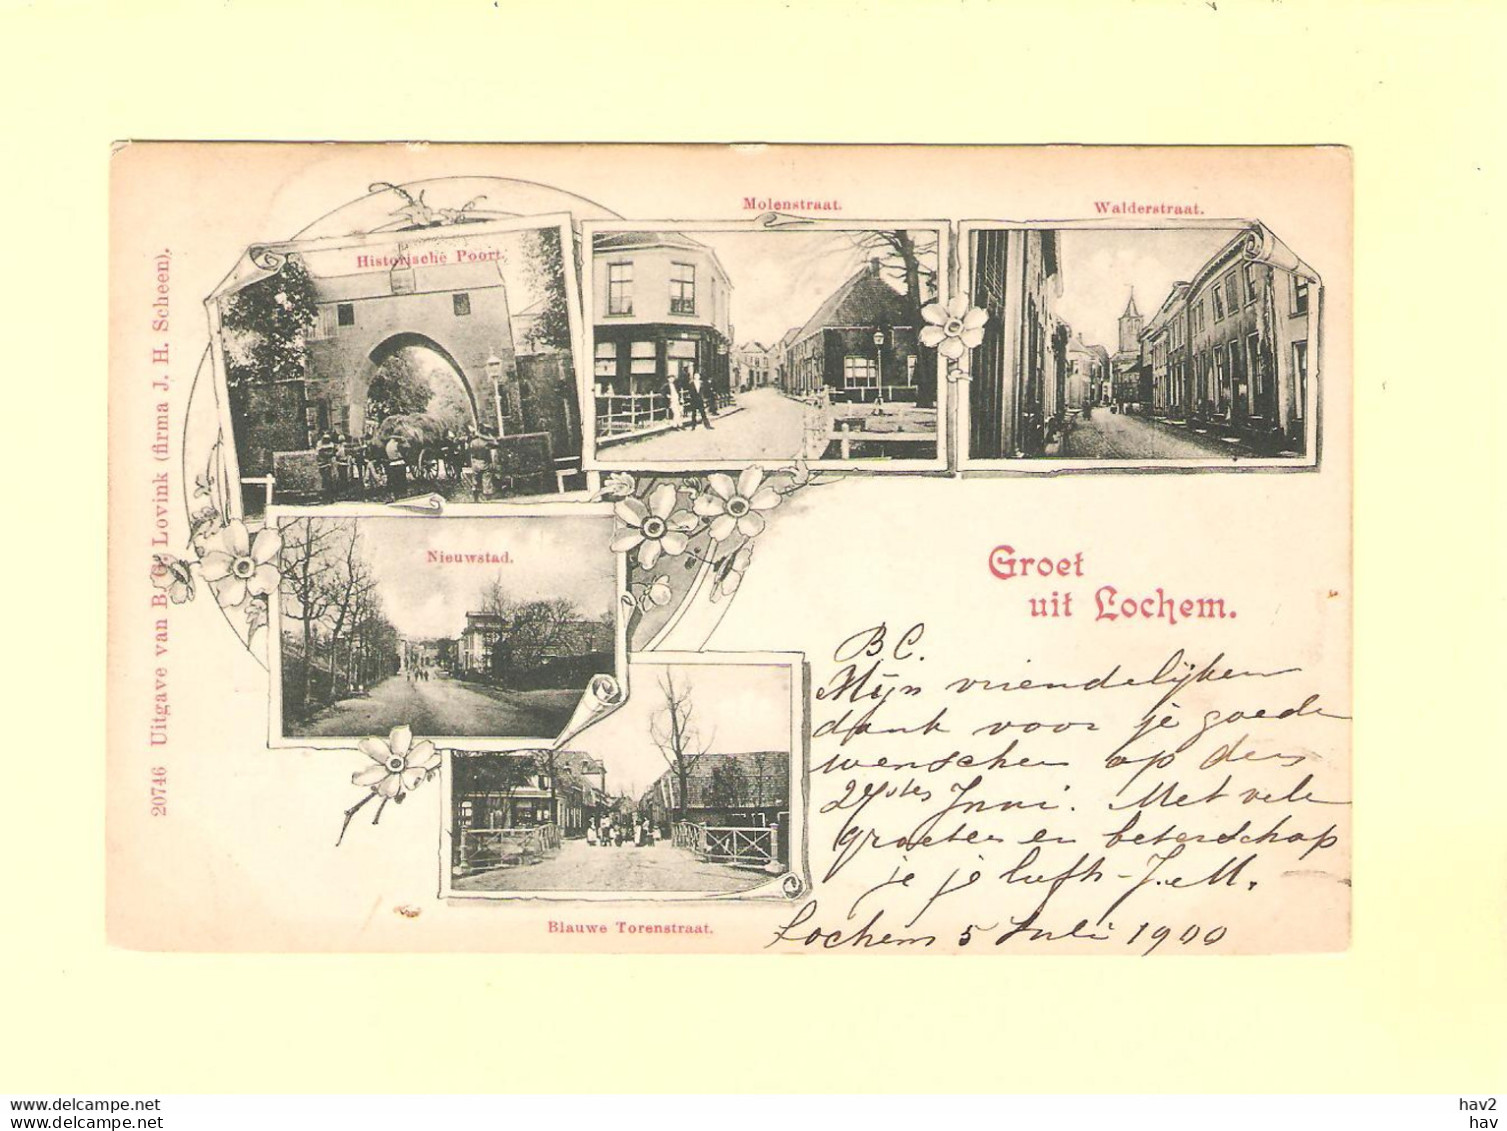 Molenstraat.
Walderstraat.
Historische Poort.
Nieuwstad.
Blauwe Torenstraat.
20746 Uitgave van B. G. Lovink (firma J. H. Scheen).
Groet
uit Lochem.
B C.
Mijn vriendelijken
dank voor je goede
wenschen op den
Juni. Met vele
groeten en beterschap
je J. M.
Lochem 5 Juli 1900
delcampe.net
hav2
delcampe.net
hav